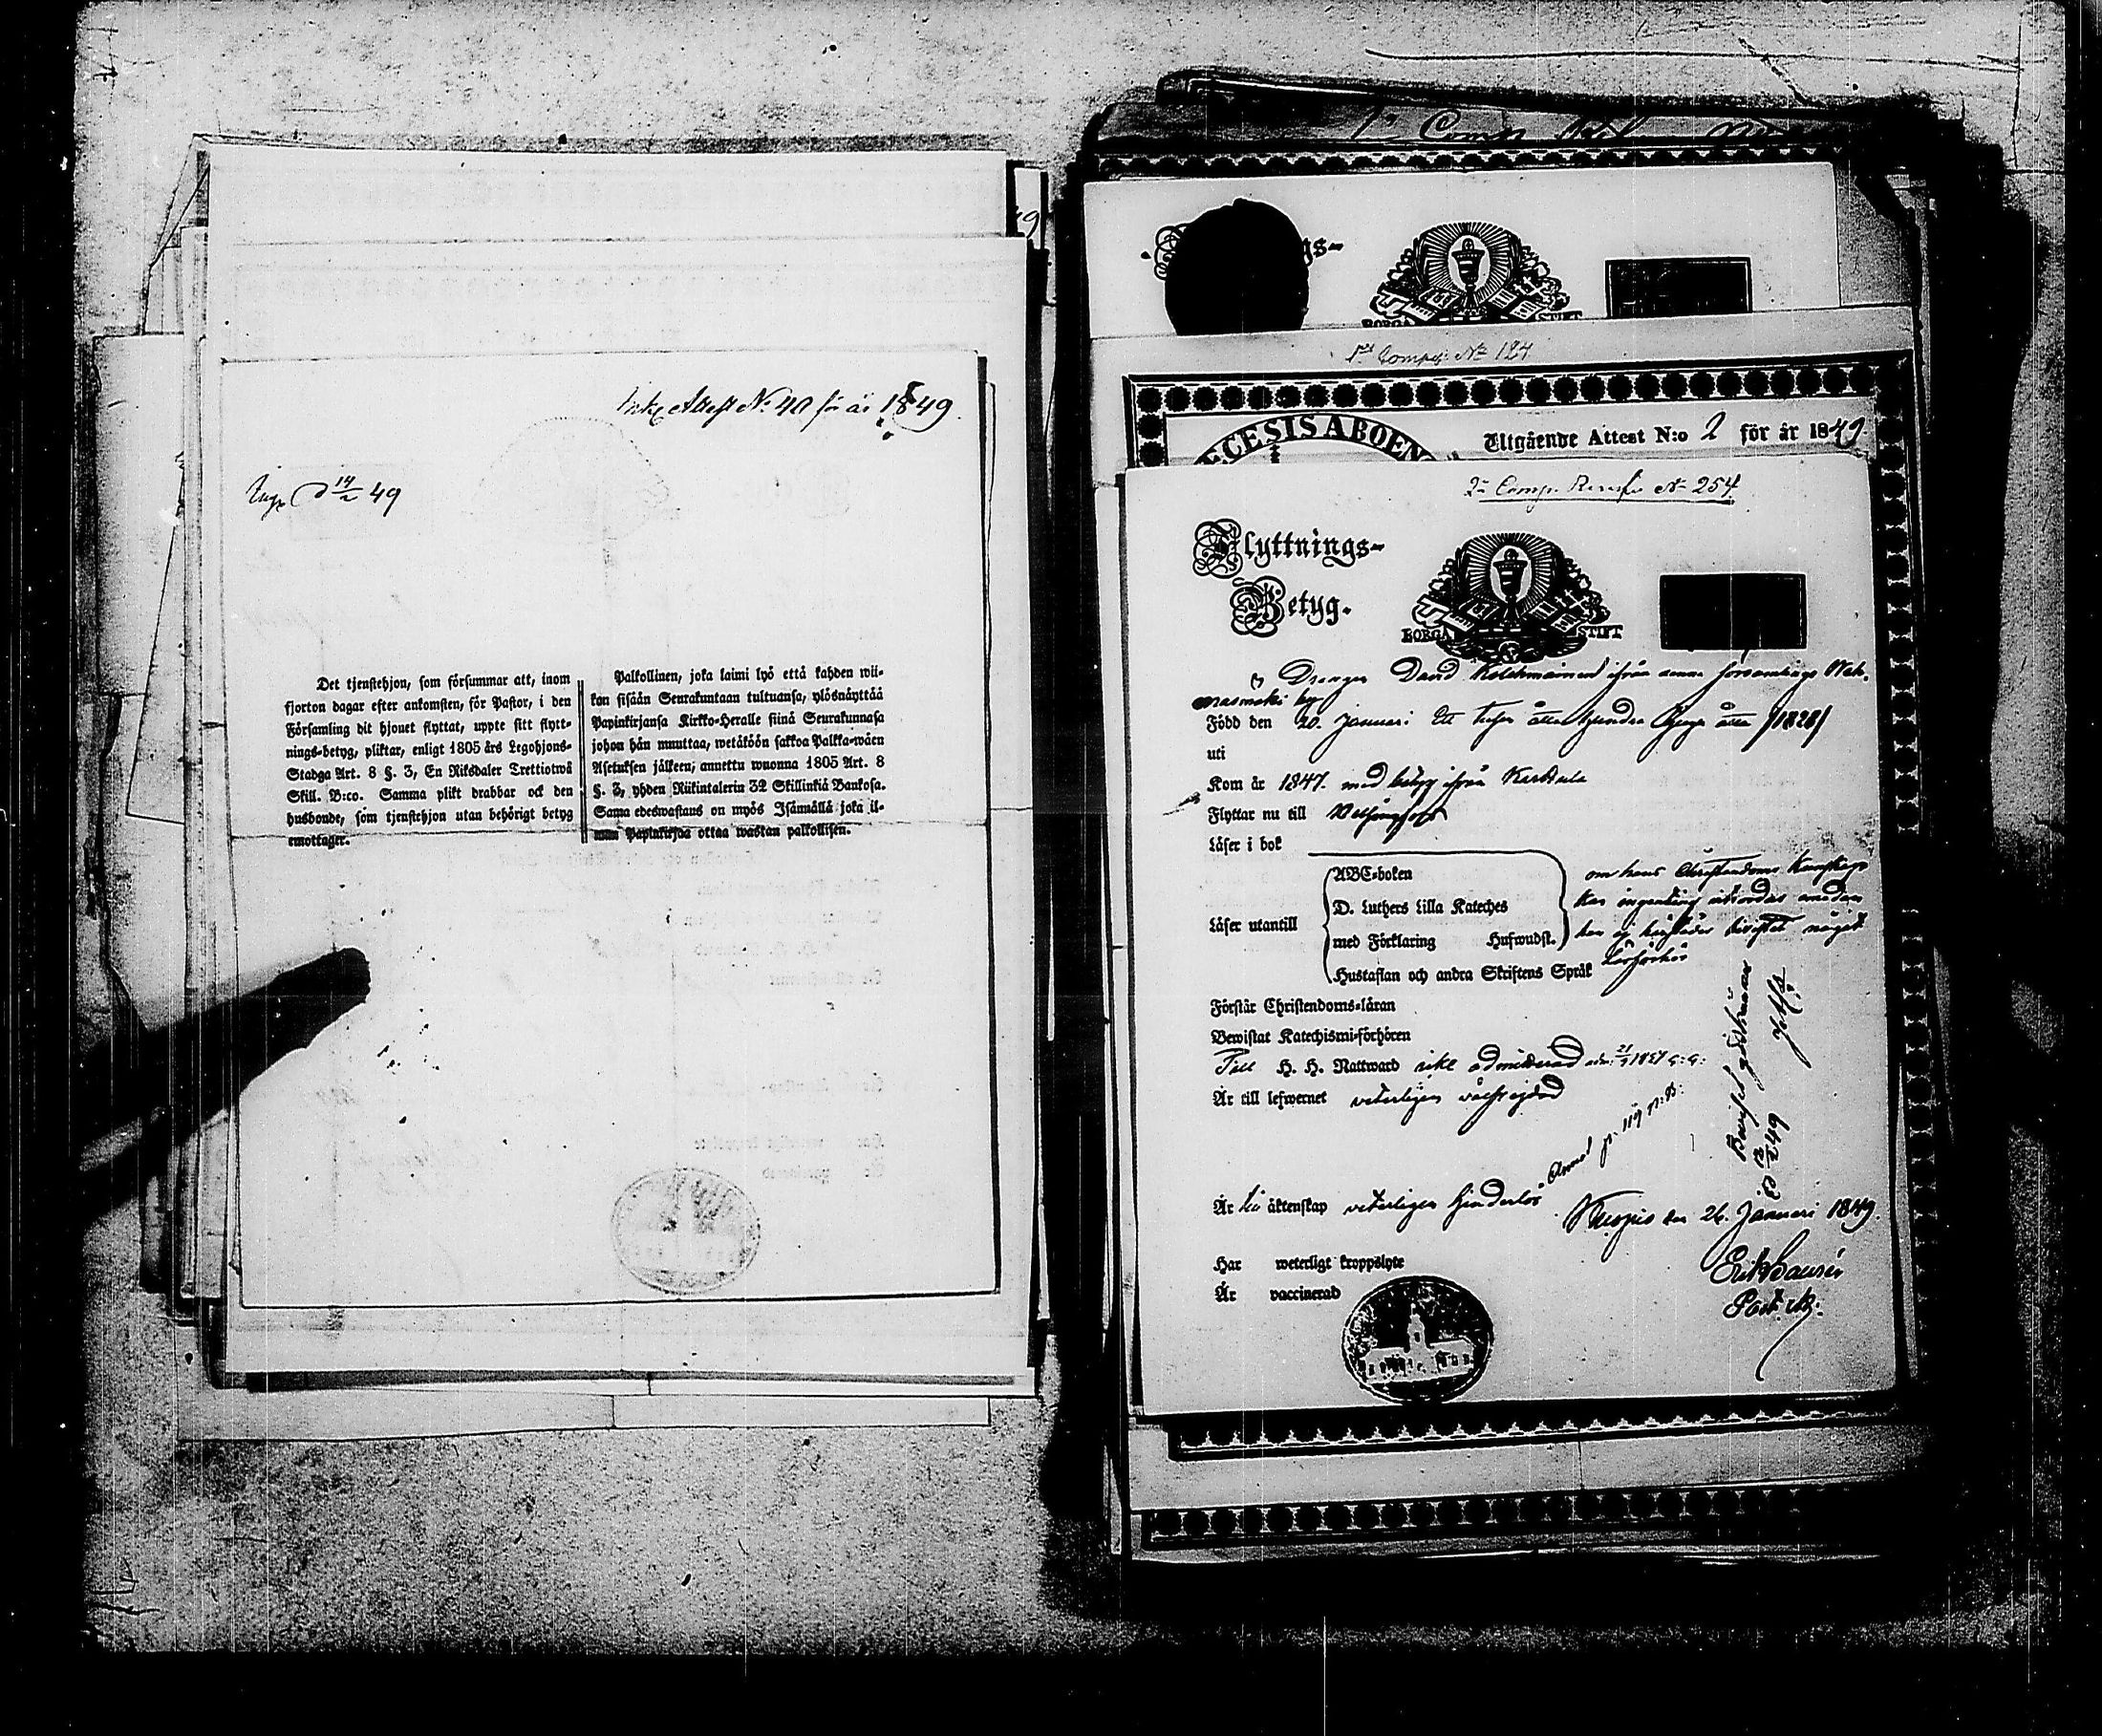 49
Ink. Attest No 40 för år 1849.
Ing. d 14/2 49
Det tjenstehjon, som försummar att, inom
fjorton dagar efter ankomsten, för Pastor, i den
Församling dit hjonet flyttat, uppte sitt flytt-
nings-betyg, pliktar, enligt 1805 års Legohjons-
Stadga Art. 8 §. 3, En Riksdaler Trettiotwå
Skill. B:co. Samma plikt drabbar ock den
husbonde, som tjenstehjon utan behörigt betyg
emottager.
Palkollinen, joka laimi lyö että kahden wii-
kon sisään Seurakuntaan tultuansa, ylösnäyttää
Papinkirjansa Kirkko-Heralle siinä Seurakunnasa
johon hän muuttaa, wetäköön sakkoa Palkka-wäen
Asetuksen jälkeen, annettu wuonna 1805 Art. 8
§. 3, yhden Riikintalerin 32 Skillinkiä Bankosa.
Sama edeswastaus on myös Isännällä joka il-
man Papinkirjaa ottaa wastan palkollisen.
BORGÅ STIFT
1st Comp. No 124
ECESIS ABOEN
Utgående Attest N:o 2 för år 1849.
2a Comp. No 254
Flyttnings-
Betyg.
BORGÅ STIFT
Drengen David ifrån denna församlings
by
Född den 20. Januari Ett tusen åtta hundra tjugu åtta /1828/
uti
Kom år 1847. med betyg ifrån
Flyttar nu till Helsingfors
Läser i bok
Läser utantill
ABC-boken
D. Luthers Lilla Kateches
med Förklaring Hufwudst.
Hustaflan och andra Skriftens Språk
om hans Christendoms kunskap
kan ingenting vitsordas emedan
han ej härstädes bevistat något
Läsförhör
Förstår Christendoms-läran
Bewistat Katechismi-förhören
Till H. H. Nattward admitterad
Är till lefwernet veterligen välfrejdad
Är till äktenskap veterligen hinderlös
Kuopio den 26. Januari 1849.
Har weterligt kroppslyte
Är vaccinerad
Past.
49